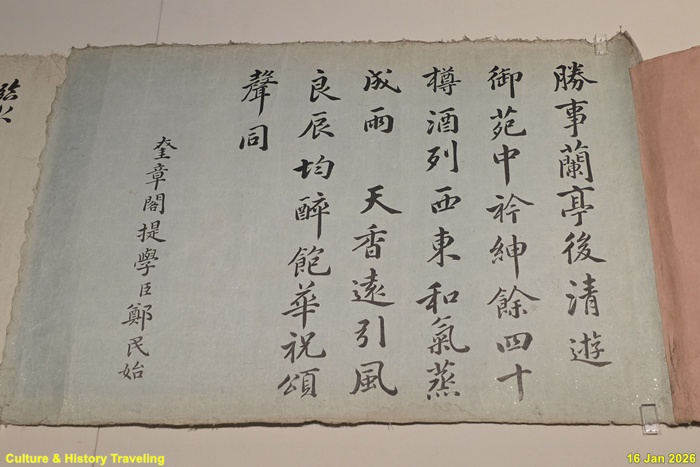 勝事蘭亭後清遊
御苑中衿紳餘四十
樽酒列西東和氣蒸
成雨　天香遠引風
良辰均醉飽華祝頌
聲同
奎章閣提學臣鄭民始
Culture & History Traveling
16 Jan 2026